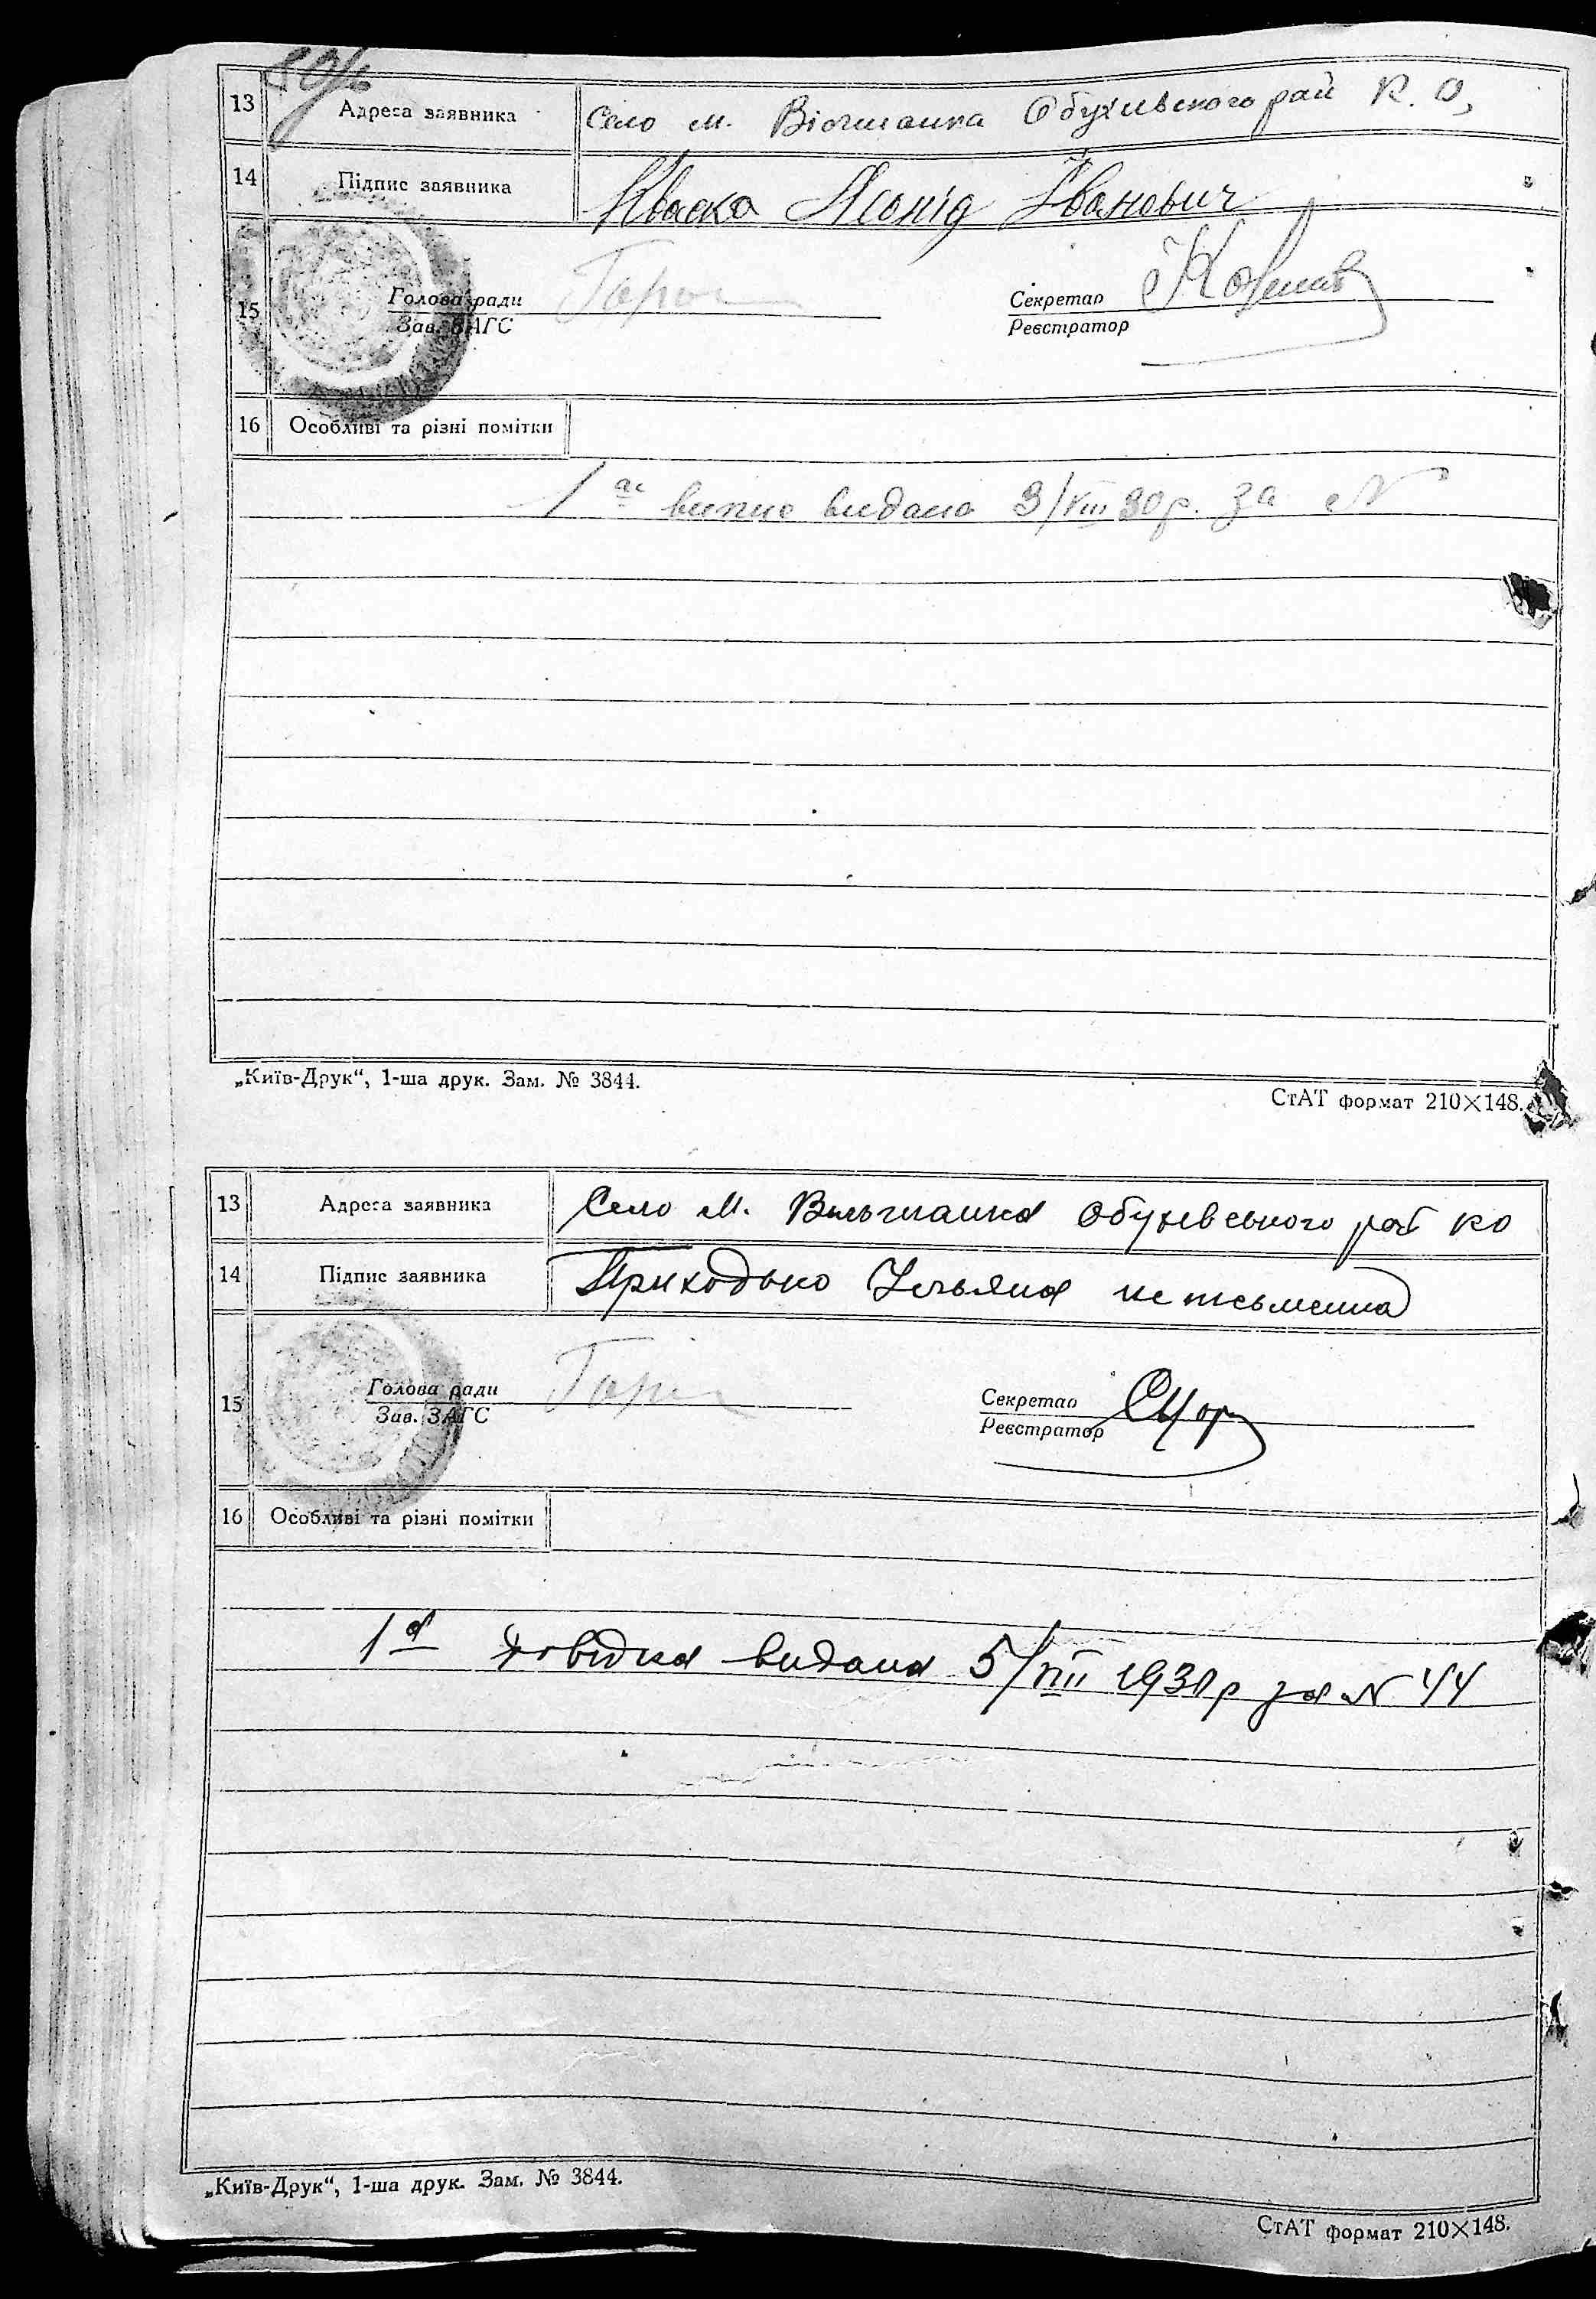 13 Адреса заявника Село м. Вільшанка Обухівського рай К. О,
14 Підпис заявника Кваска Леонід Іванович
15 Голова ради Секретар
Зав. ЗАГС Реєстратор
16 Особливі та різні помітки
1 ас випис видано 3/VIII 30 р. за N
„Київ-Друк“, 1-ша друк. Зам. № 3844.
СтАТ формат 210×148.
13 Адреса заявника Село м. Вильшанка Обухівського рай КО
14 Підпис заявника Приходько Ульяна неписьменна
15 Голова ради Секретар
Зав. ЗАГС Реєстратор
16 Особливі та різні помітки
1а довідка видана 5/VIII 1930 р за N 44
„Київ-Друк“, 1-ша друк. Зам. № 3844.
СтАТ формат 210×148.